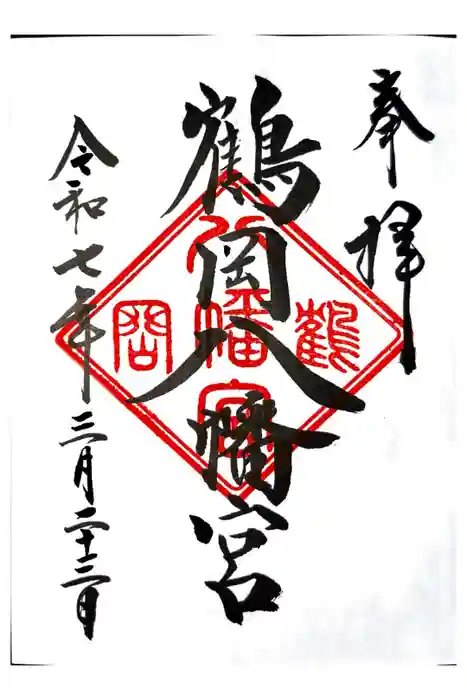 奉拝
鶴岡八幡宮
令和七年三月二十三日
鶴
八幡宮
岡